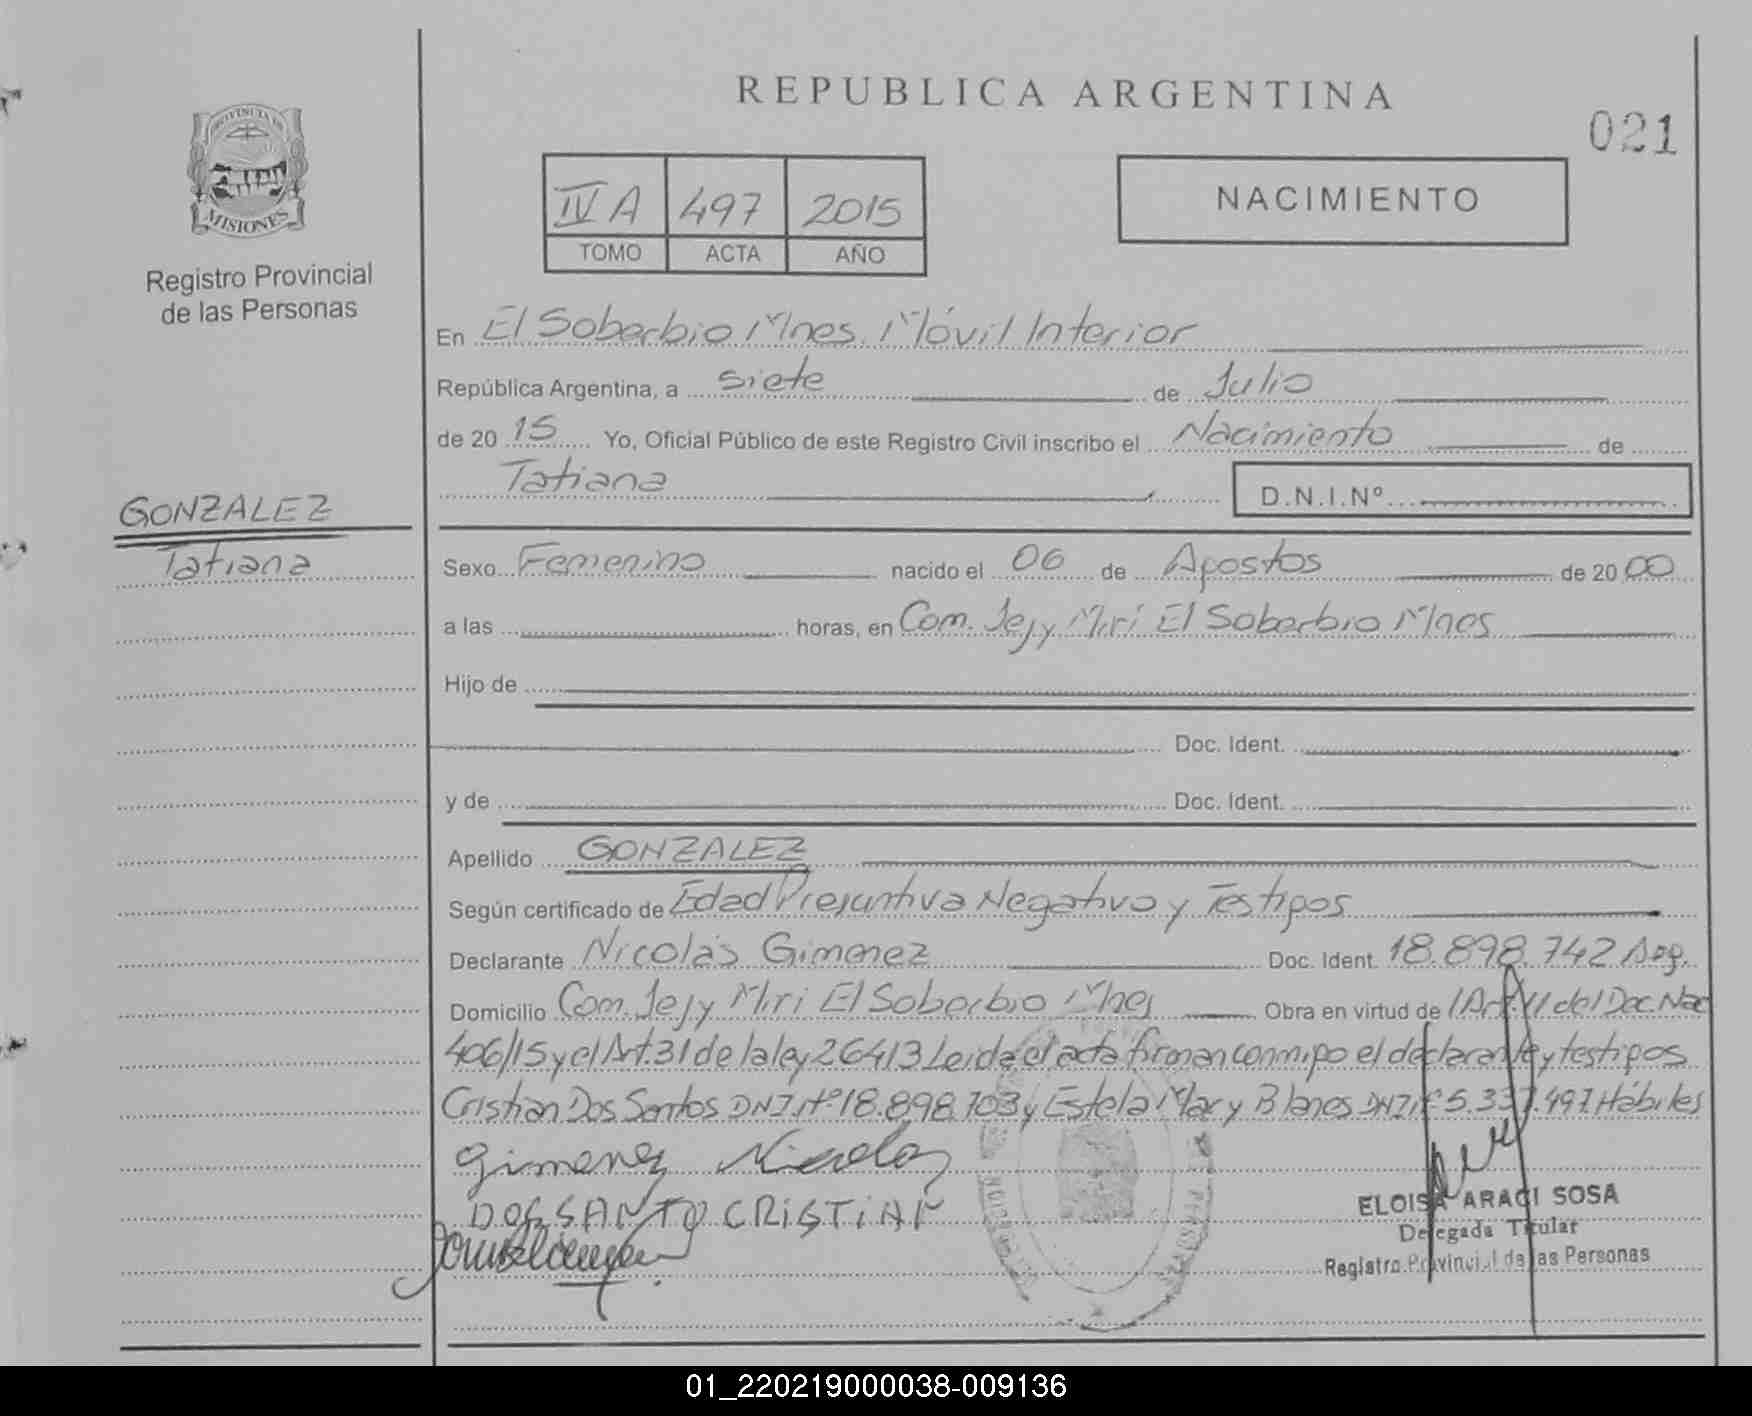 REPUBLICA ARGENTINA
021
PROVINCIA DE
MISIONES
Registro Provincial
de las Personas
IV A 497 2015
TOMO ACTA AÑO
NACIMIENTO
En El Soberbio Mnes. Móvil Interior
República Argentina, a siete de Julio
de 20 15 Yo, Oficial Público de este Registro Civil inscribo el Nacimiento de
Tatiana D.N.I.Nº
GONZALEZ
Tatiana
Sexo Femenino nacido el 06 de Agostos de 20 00
a las horas, en Com. Jejy Miri El Soberbio Mnes
Hijo de
Doc. Ident.
y de Doc. Ident.
Apellido GONZALEZ
Según certificado de Edad Presuntiva Negativo y Testigos
Declarante Nicolás Gimenez Doc. Ident. 18.898.742 Arg.
Domicilio Com. Jejy Miri El Soberbio Mnes Obra en virtud del Art. 11 del Dec. Nac
406/15 y el Art. 31 de la ley 26413 Leida el acta firman conmigo el declarante y testigos
Cristian Dos Santos DNI. Nº 18.898.703 y Estela Mary Blanes DNI. Nº 5.337.497 Hábiles
Gimenez Nicolas
DOS SANTO CRISTIAN
ELOISA ARACI SOSA
Delegada Titular
Registro Provincial de las Personas
01_220219000038-009136